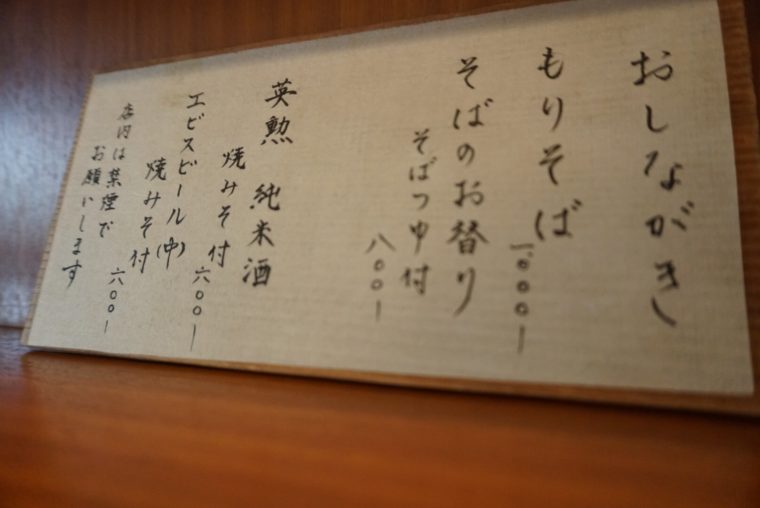 おしながき
もりそば
一、〇〇〇ー
そばのお替り
そばつゆ付
八〇〇ー
英勲 純米酒
焼みそ付
六〇〇ー
エビスビール(中)
焼みそ付
六〇〇ー
店内は禁煙で
お願いします